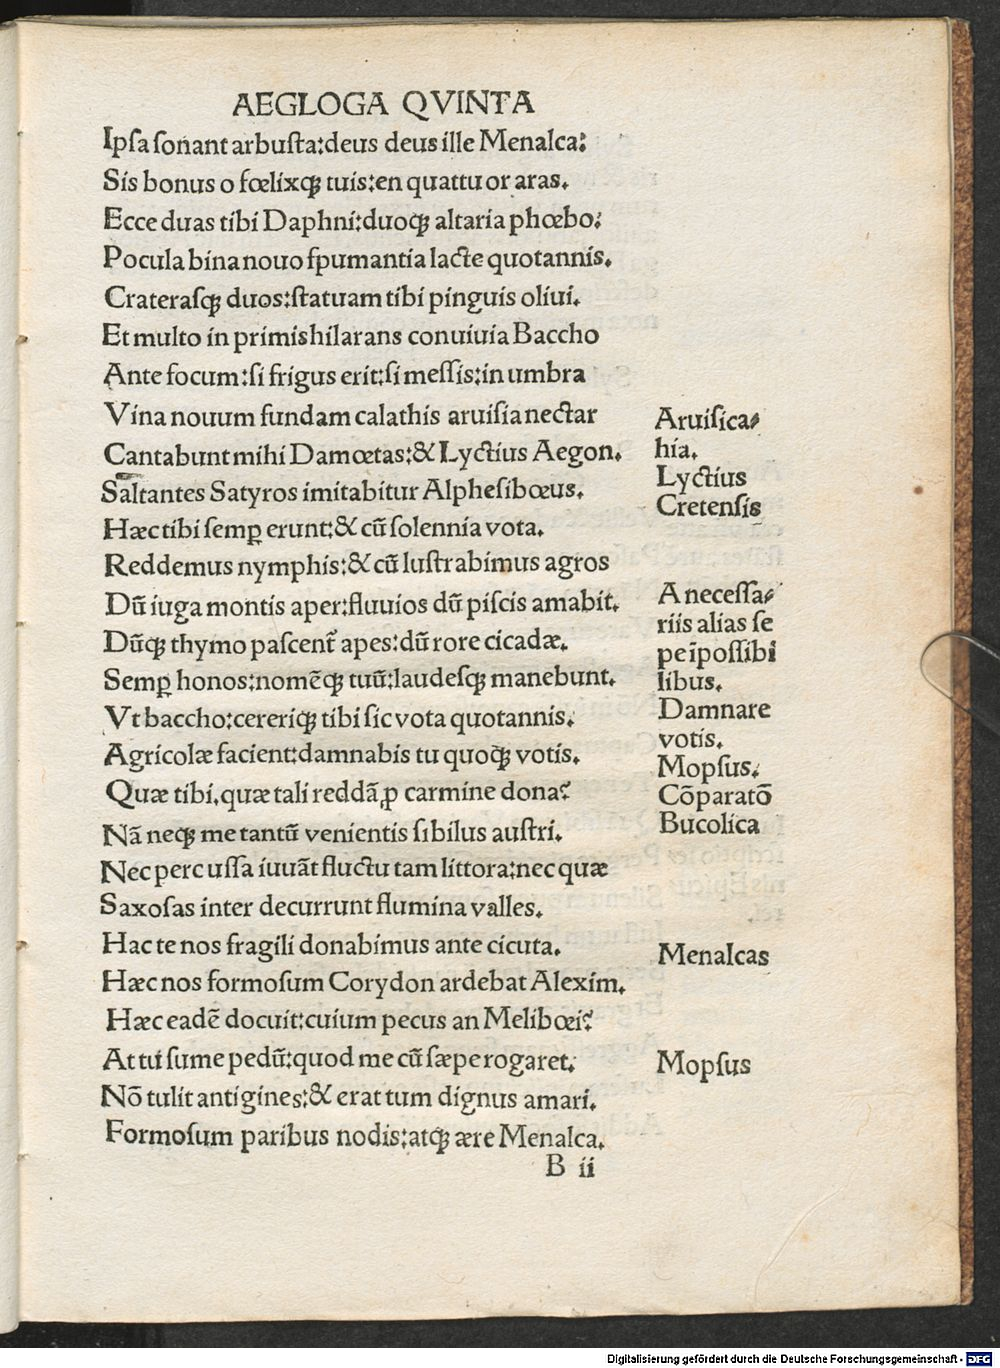 AEGLOGA QVINTA
Ipſa ſonant arbuſta:deus deus ille Menalca:
Sis bonus o fœlixqꝫ tuis:en quattuor aras.
Ecce duas tibi Daphni:duoqꝫ altaria phœbo:
Pocula bina nouo ſpumantia lacte quotannis.
Crateraſqꝫ duos:ſtatuam tibi pinguis oliui.
Et multo in primis hilarans conuiuia Baccho
Ante focum:ſi frigus erit:ſi meſſis:in umbra
Vina nouum fundam calathis aruiſia nectar
Cantabunt mihi Damœtas:& Lyctius Aegon.
Saltantes Satyros imitabitur Alpheſibœus.
Hæc tibi ſemꝑ erunt:& cū ſolennia vota.
Reddemus nymphis:& cū luſtrabimus agros
Dū iuga montis aper:fluuios dū piſcis amabit.
Dūqꝫ thymo paſcent̄ apes:dū rore cicadæ.
Semꝑ honos:nomēqꝫ tuū:laudeſqꝫ manebunt.
Vt baccho:cereriqꝫ tibi ſic vota quotannis.
Agricolæ facient:damnabis tu quoqꝫ votis.
Quæ tibi.quæ tali reddā ꝓ carmine dona?
Nā neqꝫ me tantū venientis ſibilus auſtri.
Nec percuſſa iuuāt fluctu tam littora:nec quæ
Saxoſas inter decurrunt flumina valles.
Hac te nos fragili donabimus ante cicuta.
Hæc nos formoſum Corydon ardebat Alexim.
Hæc eadē docuit:cuium pecus an Melibœi?
At tu ſume pedū:quod me cū ſæpe rogaret:
Nō tulit antigines:& erat tum dignus amari.
Formoſum paribus nodis:atqꝫ ære Menalca.
B ii
Aruiſica⸗
hia.
Lyctius
Cretenſis
A neceſſa⸗
riis alias ſe
pe īpoſſibi
libus.
Damnare
votis.
Mopſus.
Cōparatō
Bucolica
Menalcas
Mopſus
Digitalisierung gefördert durch die Deutsche Forschungsgemeinschaft - DFG